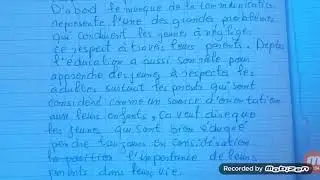 D'abod le manque de la communication
represente l'une des grandes problèmes
qui conduient les jeunes à neglige
le respect à travers leurs parents. Deplus
l'éducation a aussi son rôle pour
apprendre des jeunes à respectes les
adultes surtout les parents qui sont
considént comme un source d'orientation
aux leurs enfants, ça veut dire que
les jeunes qui sont bien éduqué
prendre toujours en considération
la position l'importance de leurs
parents dans leurs vie.
Recorded by
Mobizen